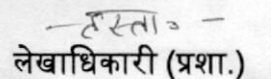 — हस्ता० —
लेखाधिकारी (प्रशा.)